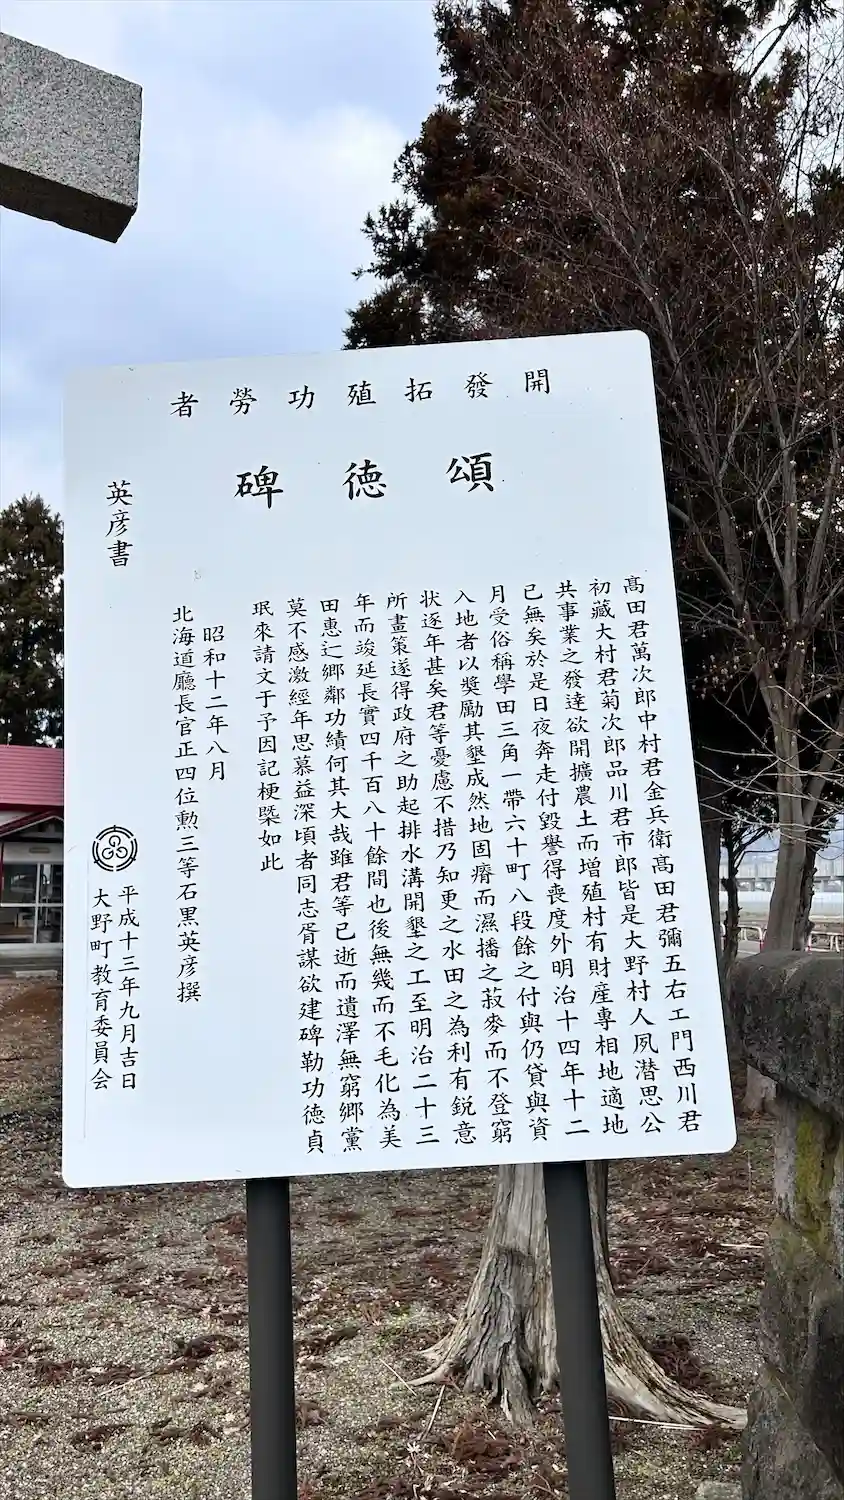 開發拓殖功勞者
頌德碑
髙田君萬次郎中村君金兵衛髙田君彌五右エ門西川君
初藏大村君菊次郎品川君市郎皆是大野村人夙潜思公
共事業之發達欲開擴農土而增殖村有財産專相地適地
已無矣於是日夜奔走付毀譽得喪度外明治十四年十二
月受俗稱學田三角一帶六十町八段餘之付與仍貸與資
入地者以奬勵其墾成然地固瘠而濕播之菽麥而不登窮
状逐年甚矣君等憂慮不措乃知更之水田之為利有鋭意
所畫策遂得政府之助起排水溝開墾之工至明治二十三
年而竣延長實四千百八十餘間也後無幾而不毛化為美
田惠辷郷鄰功績何其大哉雖君等已逝而遺澤無窮郷黨
莫不感激經年思慕益深頃者同志胥謀欲建碑勒功徳貞
珉來請文于予因記梗槩如此
昭和十二年八月
北海道廳長官正四位勲三等石黒英彦撰
英彦書
平成十三年九月吉日
大野町教育委員会